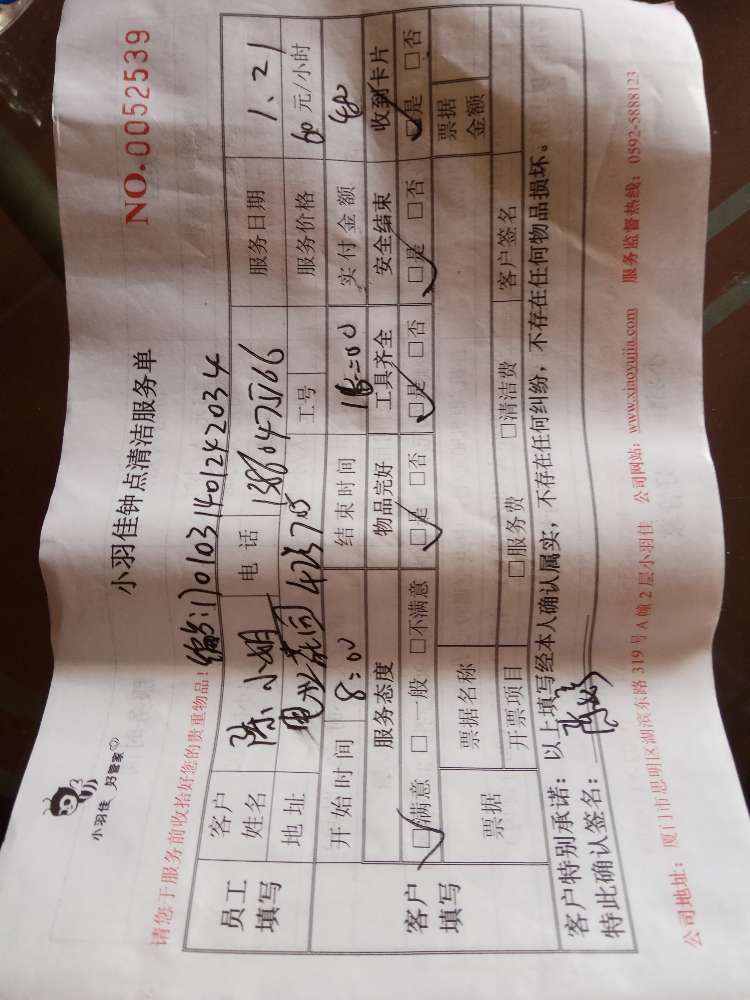 小羽佳 好管家
小羽佳钟点清洁服务单
NO.0052539
请您于服务前收拾好您的贵重物品!
编号:1701031401242034
员工填写
客户姓名 陈小姐 电话 服务日期 1.21
地址 工号 服务价格 60元/小时
开始时间 8:00 结束时间 16:00 实付金额 480
客户填写
服务态度 物品完好 工具齐全 安全结束 收到卡片
□满意 □一般 □不满意 □是 □否 □是 □否 □是 □否 □是 □否
票据 票据名称 票据金额
开票项目 □服务费 □清洁费 客户签名
客户特别承诺: 以上填写经本人确认属实,不存在任何纠纷,不存在任何物品损坏。
特此确认签名:
公司地址:厦门市思明区湖滨东路319号A幢2层小羽佳 公司网站:www.xiaoyujia.com 服务监督热线:0592-5888123